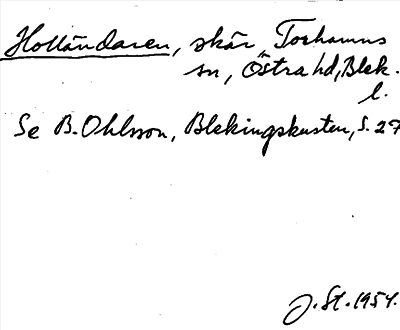 Holländaren, skär, Torhamns
sn, Östra hd, Blek.
l.
Se B. Ohlsson, Blekingskusten, s. 27
J. St. 1954.